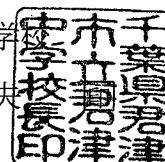 学校
千葉県君津
市立君津
中学校長印